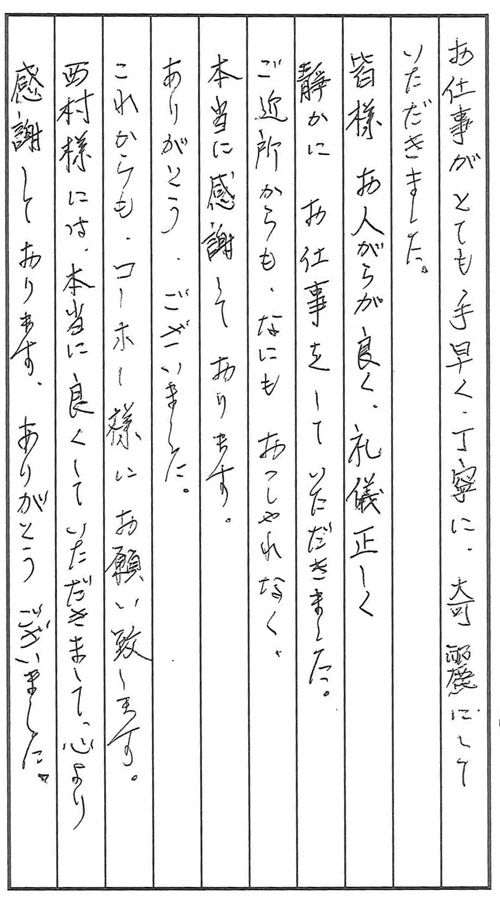 お仕事がとても手早く、丁寧に、奇麗にして
いただきました。
皆様 お人がらが良く、礼儀正しく
静かに お仕事をして いただきました。
ご近所からも、なにも おっしゃれなく、
本当に感謝して おります。
ありがとう、ございました。
これからも、コーホー様にお願い致します。
西村様には、本当に良くして いただきまして、心より
感謝して おります、ありがとう ございました。